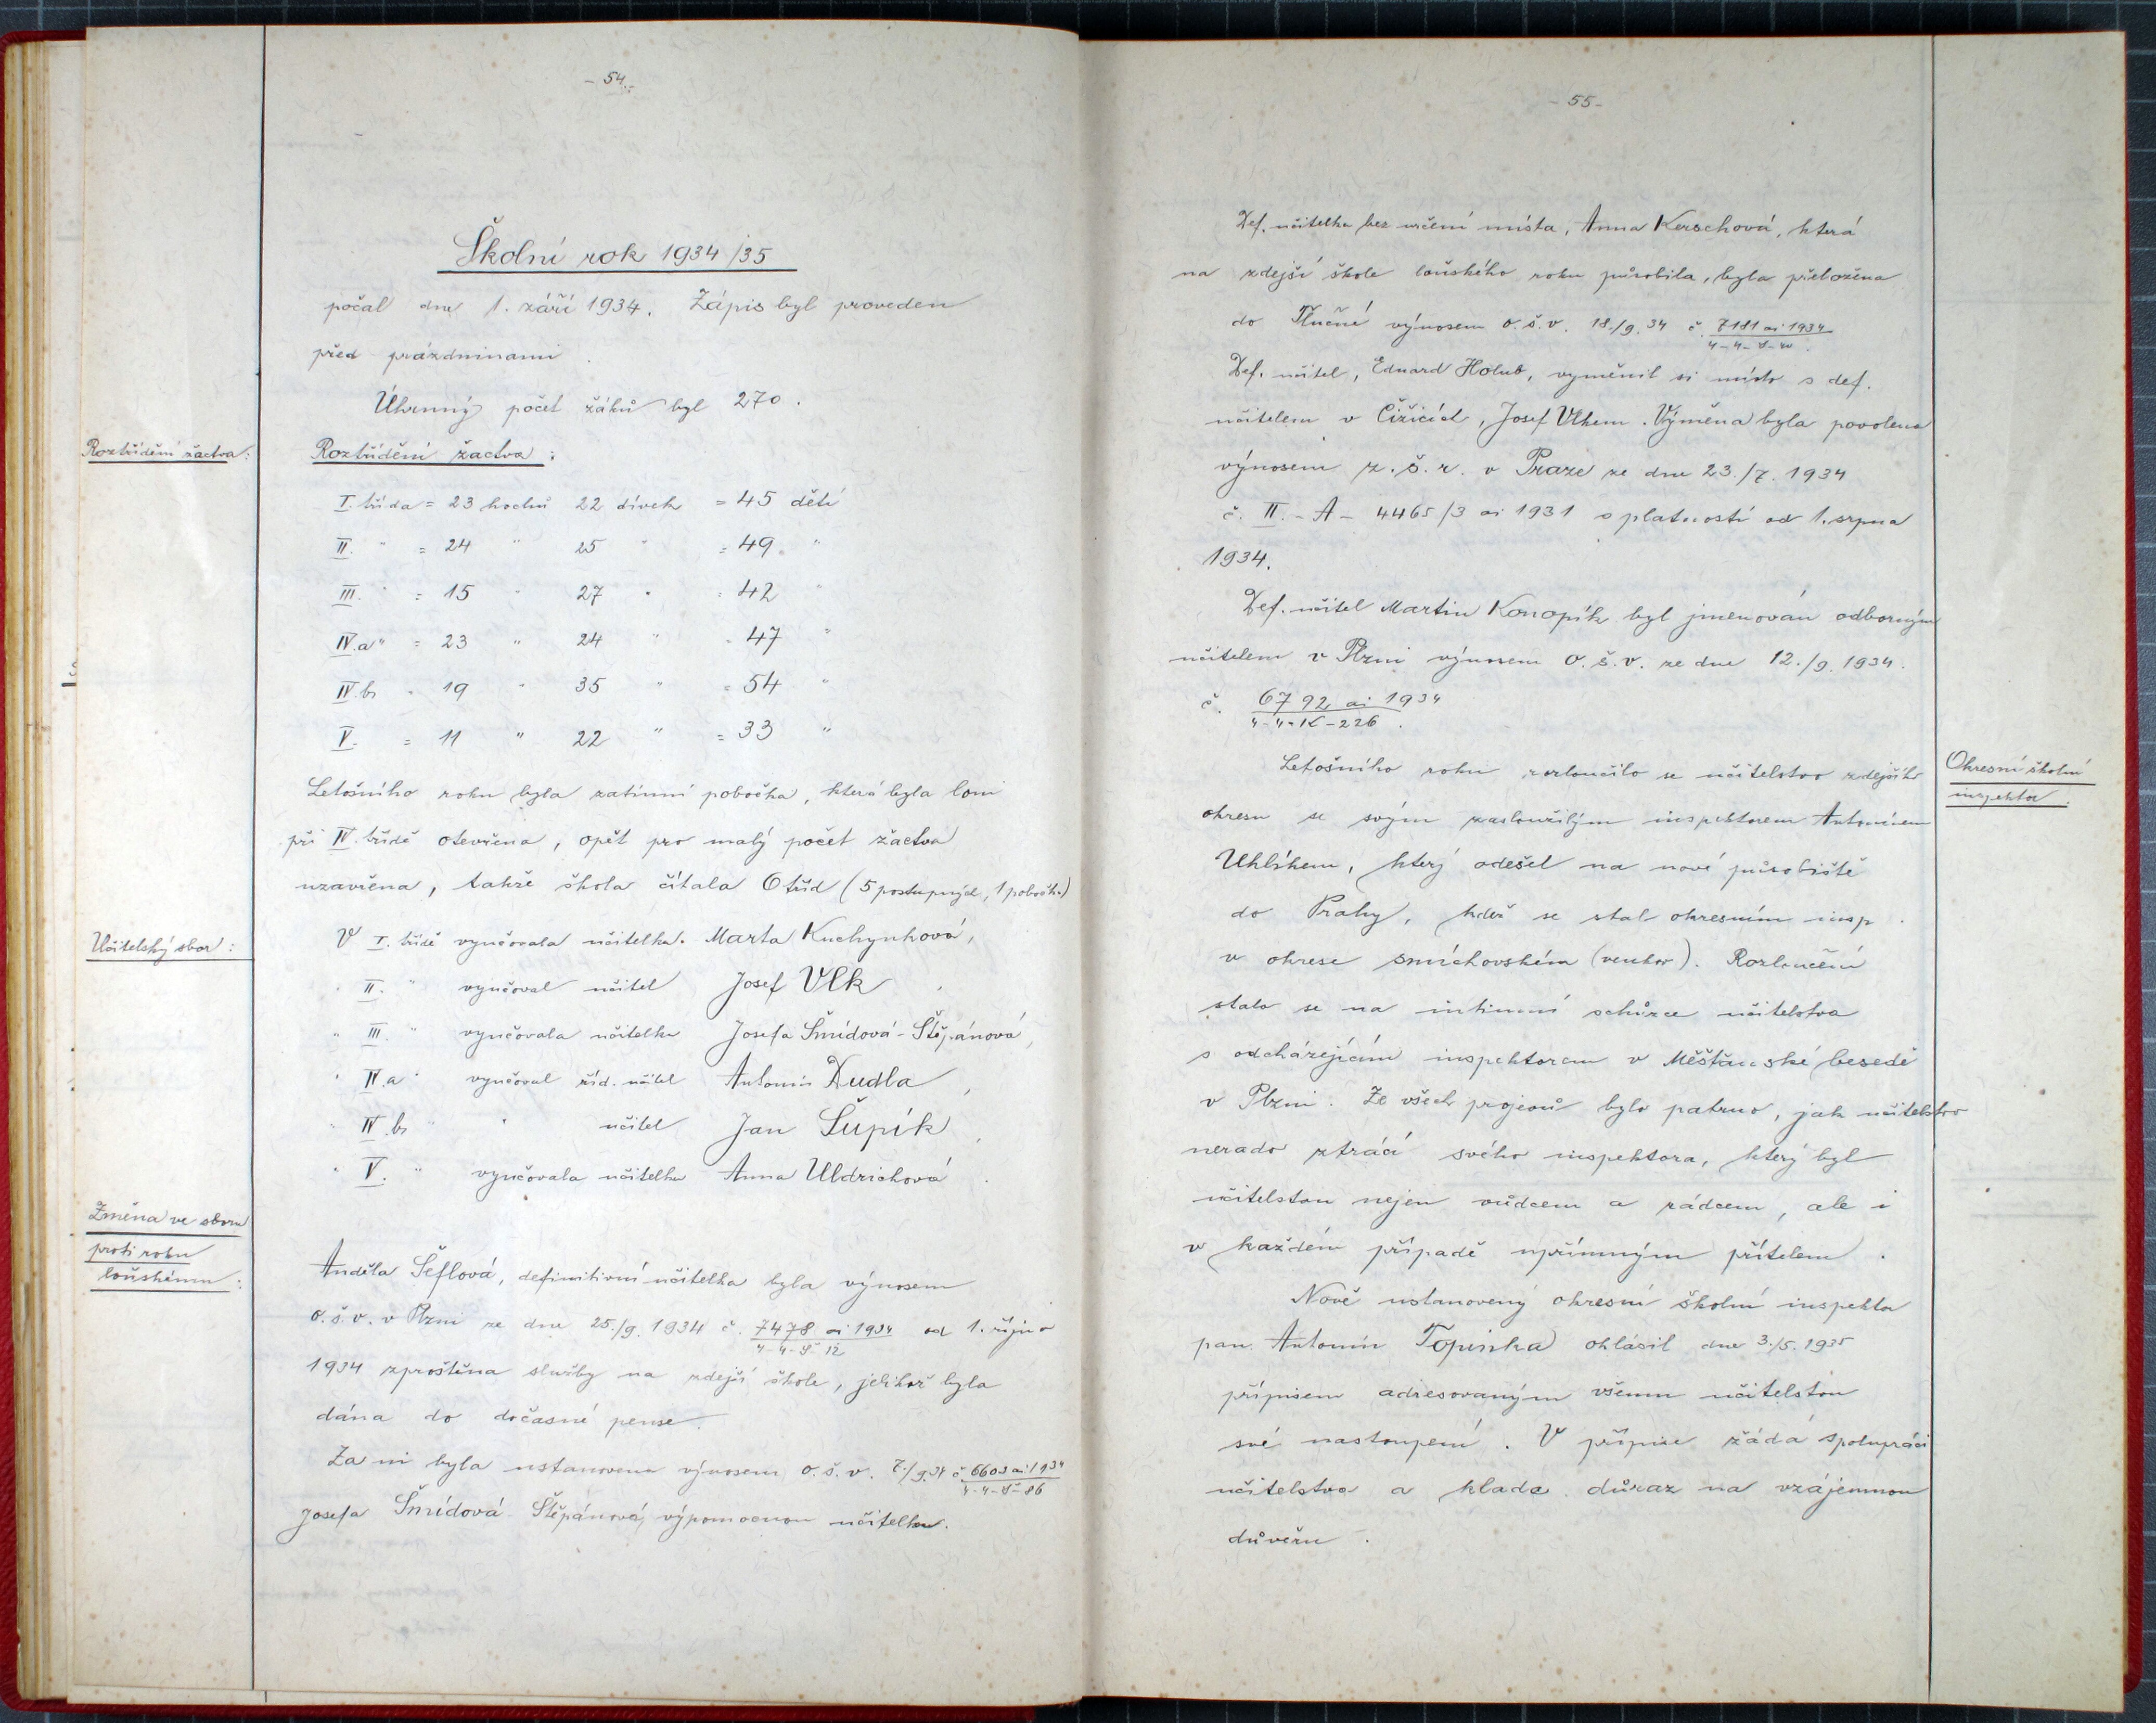 - 54 -
Školní rok 1934/35
počal dne 1. září 1934. Zápis byl proveden
před prázdninami.
Úhrnný počet žáků byl 270.
Roztřídění žactva:
Roztřídění žactva:
I. třída = 23 hochů 22 dívek = 45 dětí
II. " = 24 " 25 " = 49 "
III. " = 15 " 27 " = 42 "
IV.a " = 23 " 24 " = 47 "
IV.b " 19 " 35 " = 54 "
V. = 11 " 22 " = 33 "
Letošního roku byla zatímní pobočka, která byla loni
při IV. třídě otevřena, opět pro malý počet žactva
uzavřena, takže škola čítala 6 tříd (5 postupných, 1 pobočka)
Učitelský sbor:
V I. třídě vyučovala učitelka Marta Kuchynková,
" II. " vyučoval učitel Josef Vlk,
" III. " vyučovala učitelka Josefa Šmídová-Štěpánová,
" IV.a " vyučoval říd. učitel Antonín Dudla,
" IV.b " " učitel Jan Šupík,
" V. " vyučovala učitelka Anna Uldrichová.
Změna ve sboru
proti roku
loňskému:
Anděla Šeflová, definitivní učitelka byla výnosem
o.š.v. v Plzni ze dne 25./9. 1934 č. 7478 ai 1934 od 1. října
4-4-Š-12
1934 zproštěna služby na zdejší škole, jelikož byla
dána do dočasné pense.
Za ni byla ustanovena výnosem o.š.v. 7./9.34 č. 6603 ai 1934
4-4-Š-86
Josefa Šmídová-Štěpánová, výpomocnou učitelkou.
- 55 -
Def. učitelka bez určení místa, Anna Kerschová, která
na zdejší škole loňského roku působila, byla přeložena
do Tlučné výnosem o.š.v. 18./9. 34 č. 7181 ai 1934
Def. učitel, Eduard Holub, vyměnil si místo s def.
učitelem v Čižicích, Josef Vlkem. Výměna byla povolena
výnosem z.š.r. v Praze ze dne 23./7. 1934
č. II. - A - 4465/3 ai 1931 s platností od 1. srpna
1934.
Def. učitel Martin Konopík byl jmenován odborným
učitelem v Plzni výnosem o.š.v. ze dne 12./9. 1934.
č. 6792 ai 1934
4-4-K-226.
Okresní školní
inspektor.
Letošního roku rozloučilo se učitelstvo zdejšího
okresu se svým zasloužilým inspektorem Antonínem
Uhlíkem, který odešel na nové působiště
do Prahy, kdež se stal okresním insp.
v okrese smíchovském (venkov). Rozloučení
stalo se na intimní schůzce učitelstva
s odcházejícím inspektorem v Měšťanské besedě
v Plzni. Ze všech projevů bylo patrno, jak učitelstvo
nerado ztrácí svého inspektora, který byl
učitelstvu nejen vůdcem a rádcem, ale i
v každém případě upřímným přítelem.
Nově ustanovený okresní školní inspektor
pan Antonín Topinka ohlásil dne 3./5. 1935
přípisem adresovaným všemu učitelstvu
své nastoupení. V přípise žádá spolupráci
učitelstva a klade důraz na vzájemnou
důvěru.